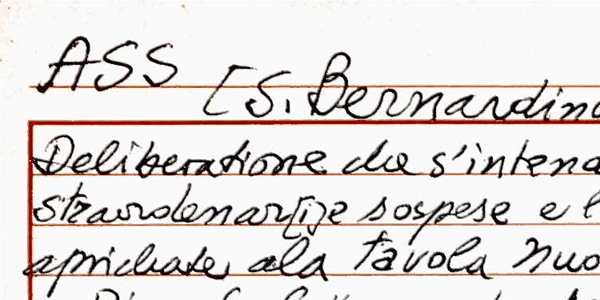 ASS [S. Bernardino
Deliberatione che s'intend
straordenar[i]e sospese e l
aprichate ala tavola nuo